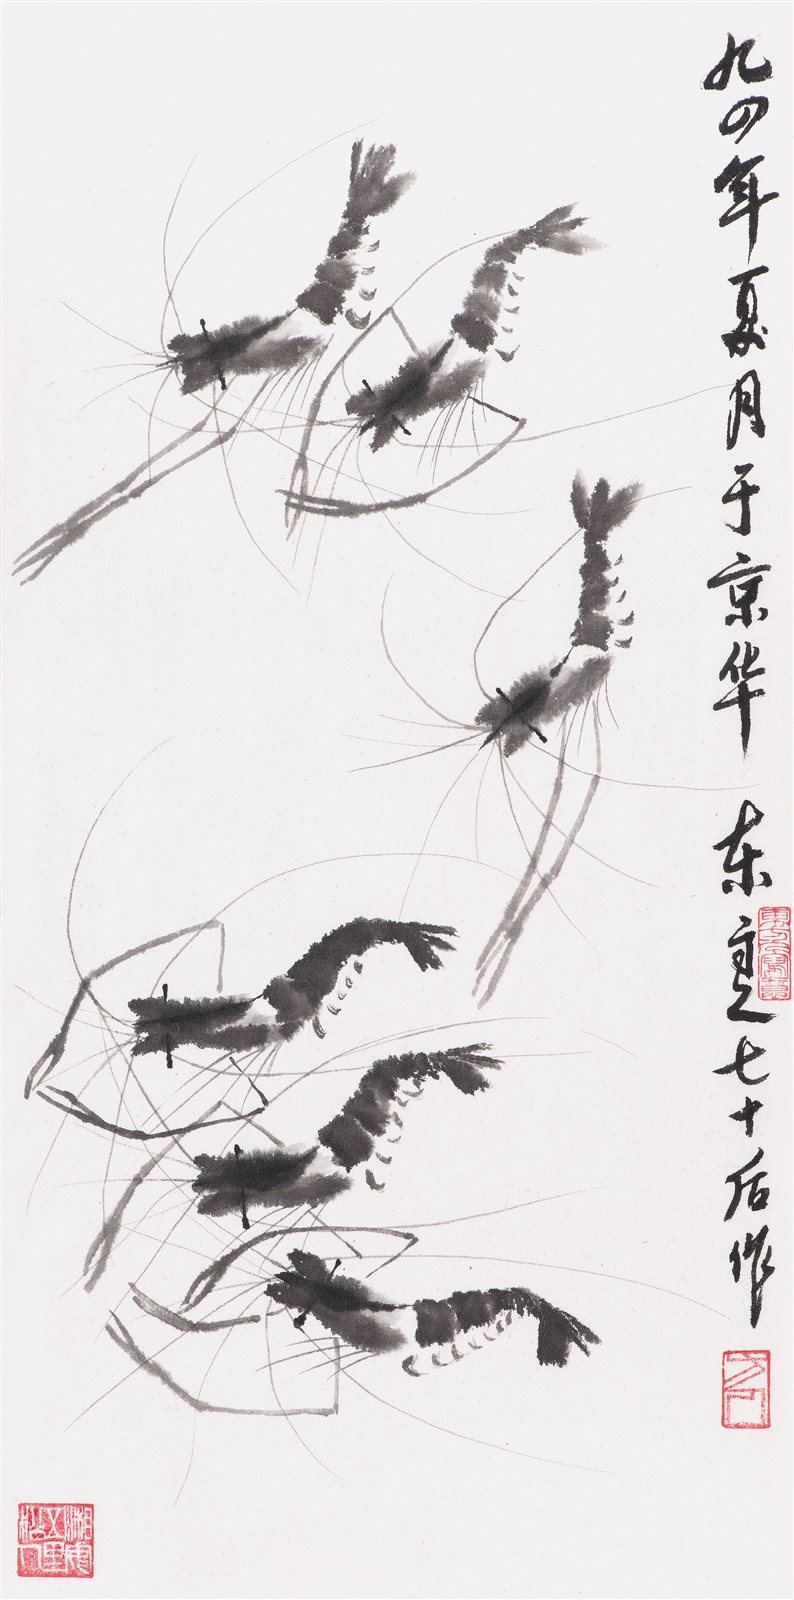 九四年夏月于京华 东 七十后作